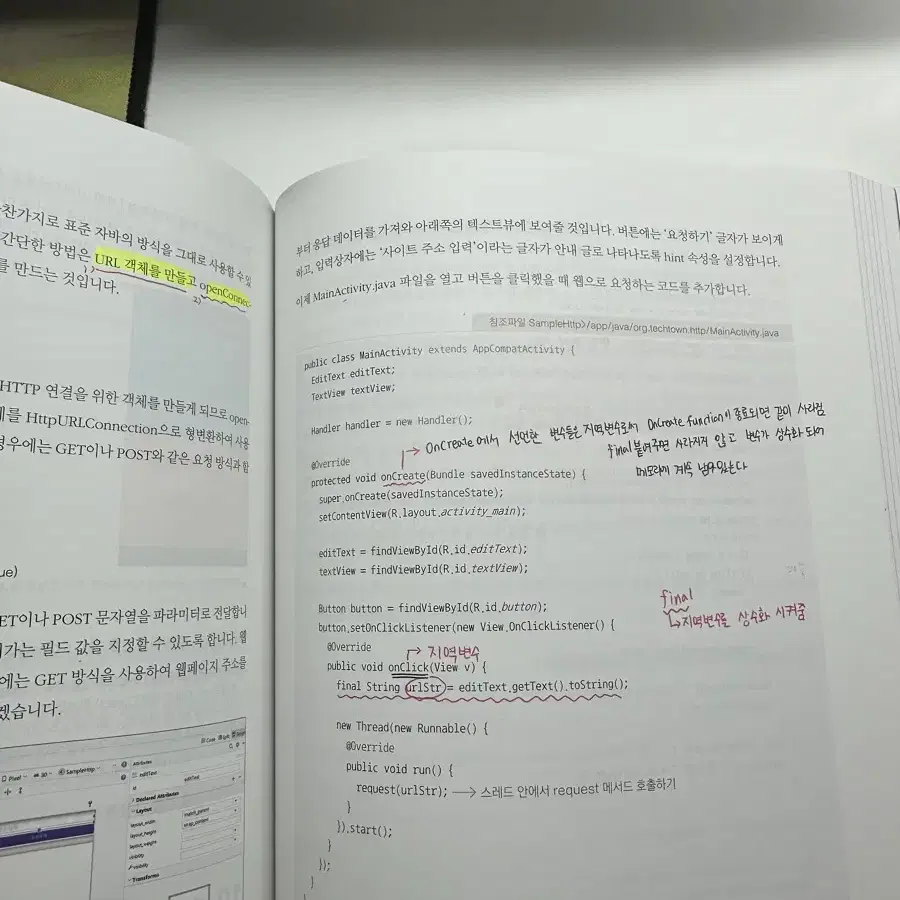 찬가지로 표준 자바의 방식을 그대로 사용할 수 있
간단한 방법은 URL 객체를 만들고 openConnec-
를 만드는 것입니다.
1)
2)
HTTP 연결을 위한 객체를 만들게 되므로 open-
체를 HttpURLConnection으로 형변환하여 사용
경우에는 GET이나 POST와 같은 요청 방식과 함
ue)
ET이나 POST 문자열을 파라미터로 전달합니
가는 필드 값을 지정할 수 있도록 합니다. 웹
에는 GET 방식을 사용하여 웹페이지 주소를
겠습니다.
Code Split
Pixel 30 SampleHttp
Attributes
editText
id editText
Declared Attributes
Layout
layout_width match_parent
layout_height wrap_content
layout_weight
visibility
visibility
Transforms
부터 응답 데이터를 가져와 아래쪽의 텍스트뷰에 보여줄 것입니다. 버튼에는 ‘요청하기’ 글자가 보이게
하고, 입력상자에는 ‘사이트 주소 입력’이라는 글자가 안내 글로 나타나도록 hint 속성을 설정합니다.
이제 MainActivity.java 파일을 열고 버튼을 클릭했을 때 웹으로 요청하는 코드를 추가합니다.
참조파일 SampleHttp>/app/java/org.techtown.http/MainActivity.java
public class MainActivity extends AppCompatActivity {
EditText editText;
TextView textView;
Handler handler = new Handler();
→ OnCreate에서 선언한 변수들은 지역변수로써 OnCreate function이 종료되면 같이 사라짐
final 붙여주면 사라지지 않고 변수가 상수화 되어
메모리에 계속 남아있는다
@Override
protected void onCreate(Bundle savedInstanceState) {
super.onCreate(savedInstanceState);
setContentView(R.layout.activity_main);
editText = findViewById(R.id.editText);
textView = findViewById(R.id.textView);
Button button = findViewById(R.id.button);
final
↳ 지역변수를 상수화 시켜줌
button.setOnClickListener(new View.OnClickListener() {
@Override
→ 지역변수
public void onClick(View v) {
final String urlStr = editText.getText().toString();
new Thread(new Runnable() {
@Override
public void run() {
request(urlStr); → 스레드 안에서 request 메서드 호출하기
}
}).start();
}
});
}